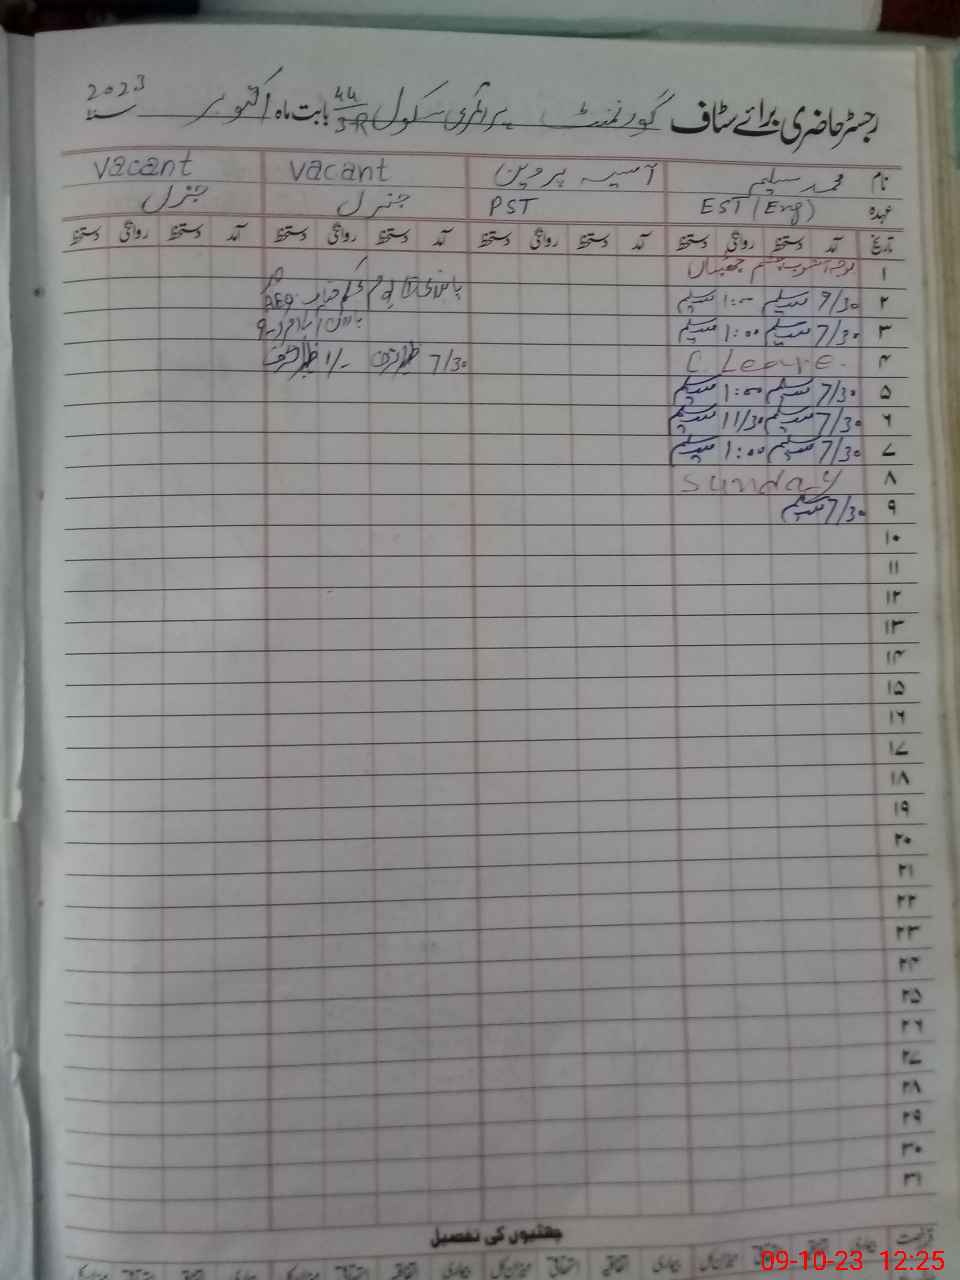 رجسٹر حاضری برائے سٹاف گورنمنٹ پرائمری سکول 44/3R بابت ماہ اکتوبر سنہ 2023
نام محمد سلیم آسیہ پروین vacant vacant
عہدہ EST (Eng) PST جنرل جنرل
تاریخ آمد دستخط روانگی دستخط آمد دستخط روانگی دستخط آمد دستخط روانگی دستخط آمد دستخط روانگی دستخط
۱
۲ 7/30 سلیم 1:00 سلیم
۳ 7/30 سلیم 1:00 سلیم
۴ C. Leave. 7/30
۵ 7/30 سلیم 1:00 سلیم
۶ 7/30 سلیم 11/30 سلیم
۷ 7/30 سلیم 1:00 سلیم
۸ Sunday
۹ 7/30 سلیم
۱۰
۱۱
۱۲
۱۳
۱۴
۱۵
۱۶
۱۷
۱۸
۱۹
۲۰
۲۱
۲۲
۲۳
۲۴
۲۵
۲۶
۲۷
۲۸
۲۹
۳۰
۳۱
چھٹیوں کی تفصیل
09-10-23 12:25